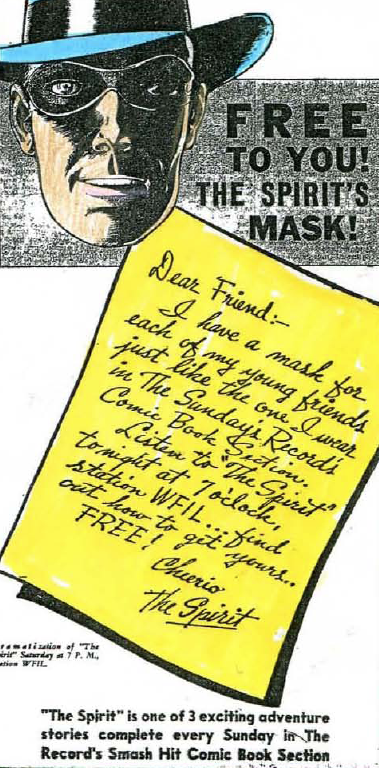 FREE
TO YOU!
THE SPIRIT'S
MASK!
Dear Friend:-
I have a mask for
each of my young friends
just like the one I wear
in The Sunday's Record's
Comic Book Section.
Listen to "The Spirit"
tonight at 7 o'clock,
station WFIL... find
out how to get yours..
FREE!
Cheerio
The Spirit
ramatization of "The
irit" Saturday at 7 P. M.,
ation WFIL.
"The Spirit" is one of 3 exciting adventure
stories complete every Sunday in The
Record's Smash Hit Comic Book Section